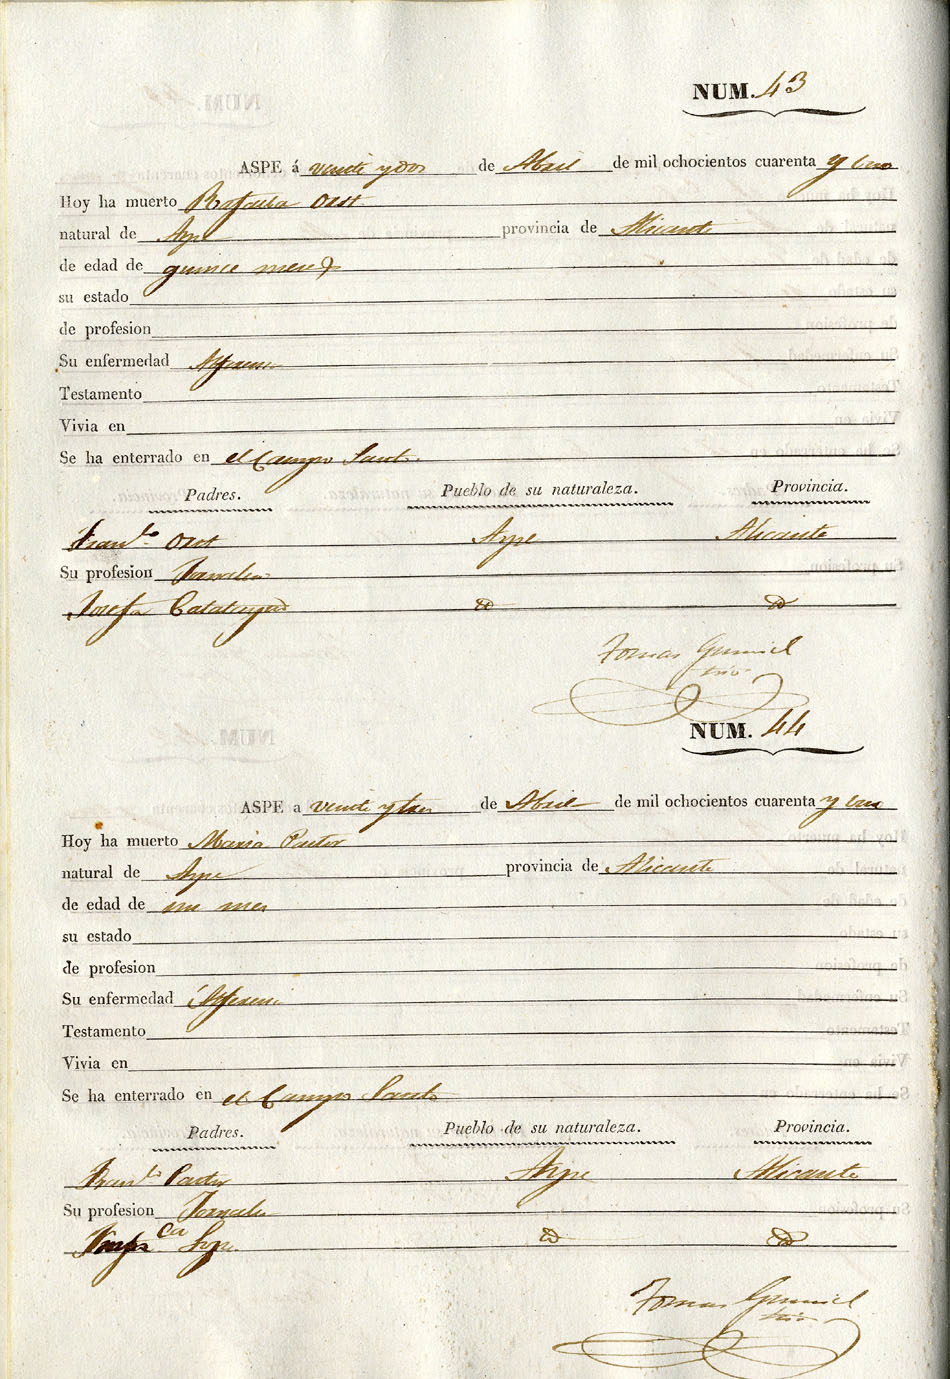 NUM. 43
ASPE á veinte y dos de Abril de mil ochocientos cuarenta y uno
Hoy ha muerto Rafaela
natural de Aspe provincia de Alicante
de edad de quince meses
su estado
de profesion
Su enfermedad Alferecia
Testamento
Vivia en
Se ha enterrado en el Campo Santo.
Padres. Pueblo de su naturaleza. Provincia.
Franco. Aspe Alicante
Su profesion Jornalero
Josefa Calatayud id id
Tomas Gumiel
NUM. 44
ASPE a veinte y tres de Abril de mil ochocientos cuarenta y uno
Hoy ha muerto Maria Pastor
natural de Aspe provincia de Alicante
de edad de un mes
su estado
de profesion
Su enfermedad Alferecia
Testamento
Vivia en
Se ha enterrado en el Campo Santo
Padres. Pueblo de su naturaleza. Provincia.
Franco. Pastor Aspe Alicante
Su profesion Jornalero
id id
Tomas Gumiel